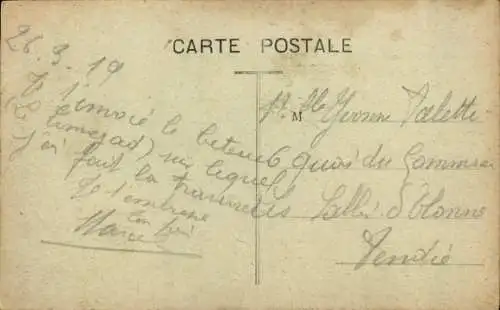 CARTE POSTALE
26.3.19
Je t'envoie le bateau
(Le Timgad) sur lequel
j'ai fait la traversée
Je t'embrasse
ton
Marcel
M
Mlle Yvonne Valette
Quai du Commerce
Les Sables d'Olonne
Vendée